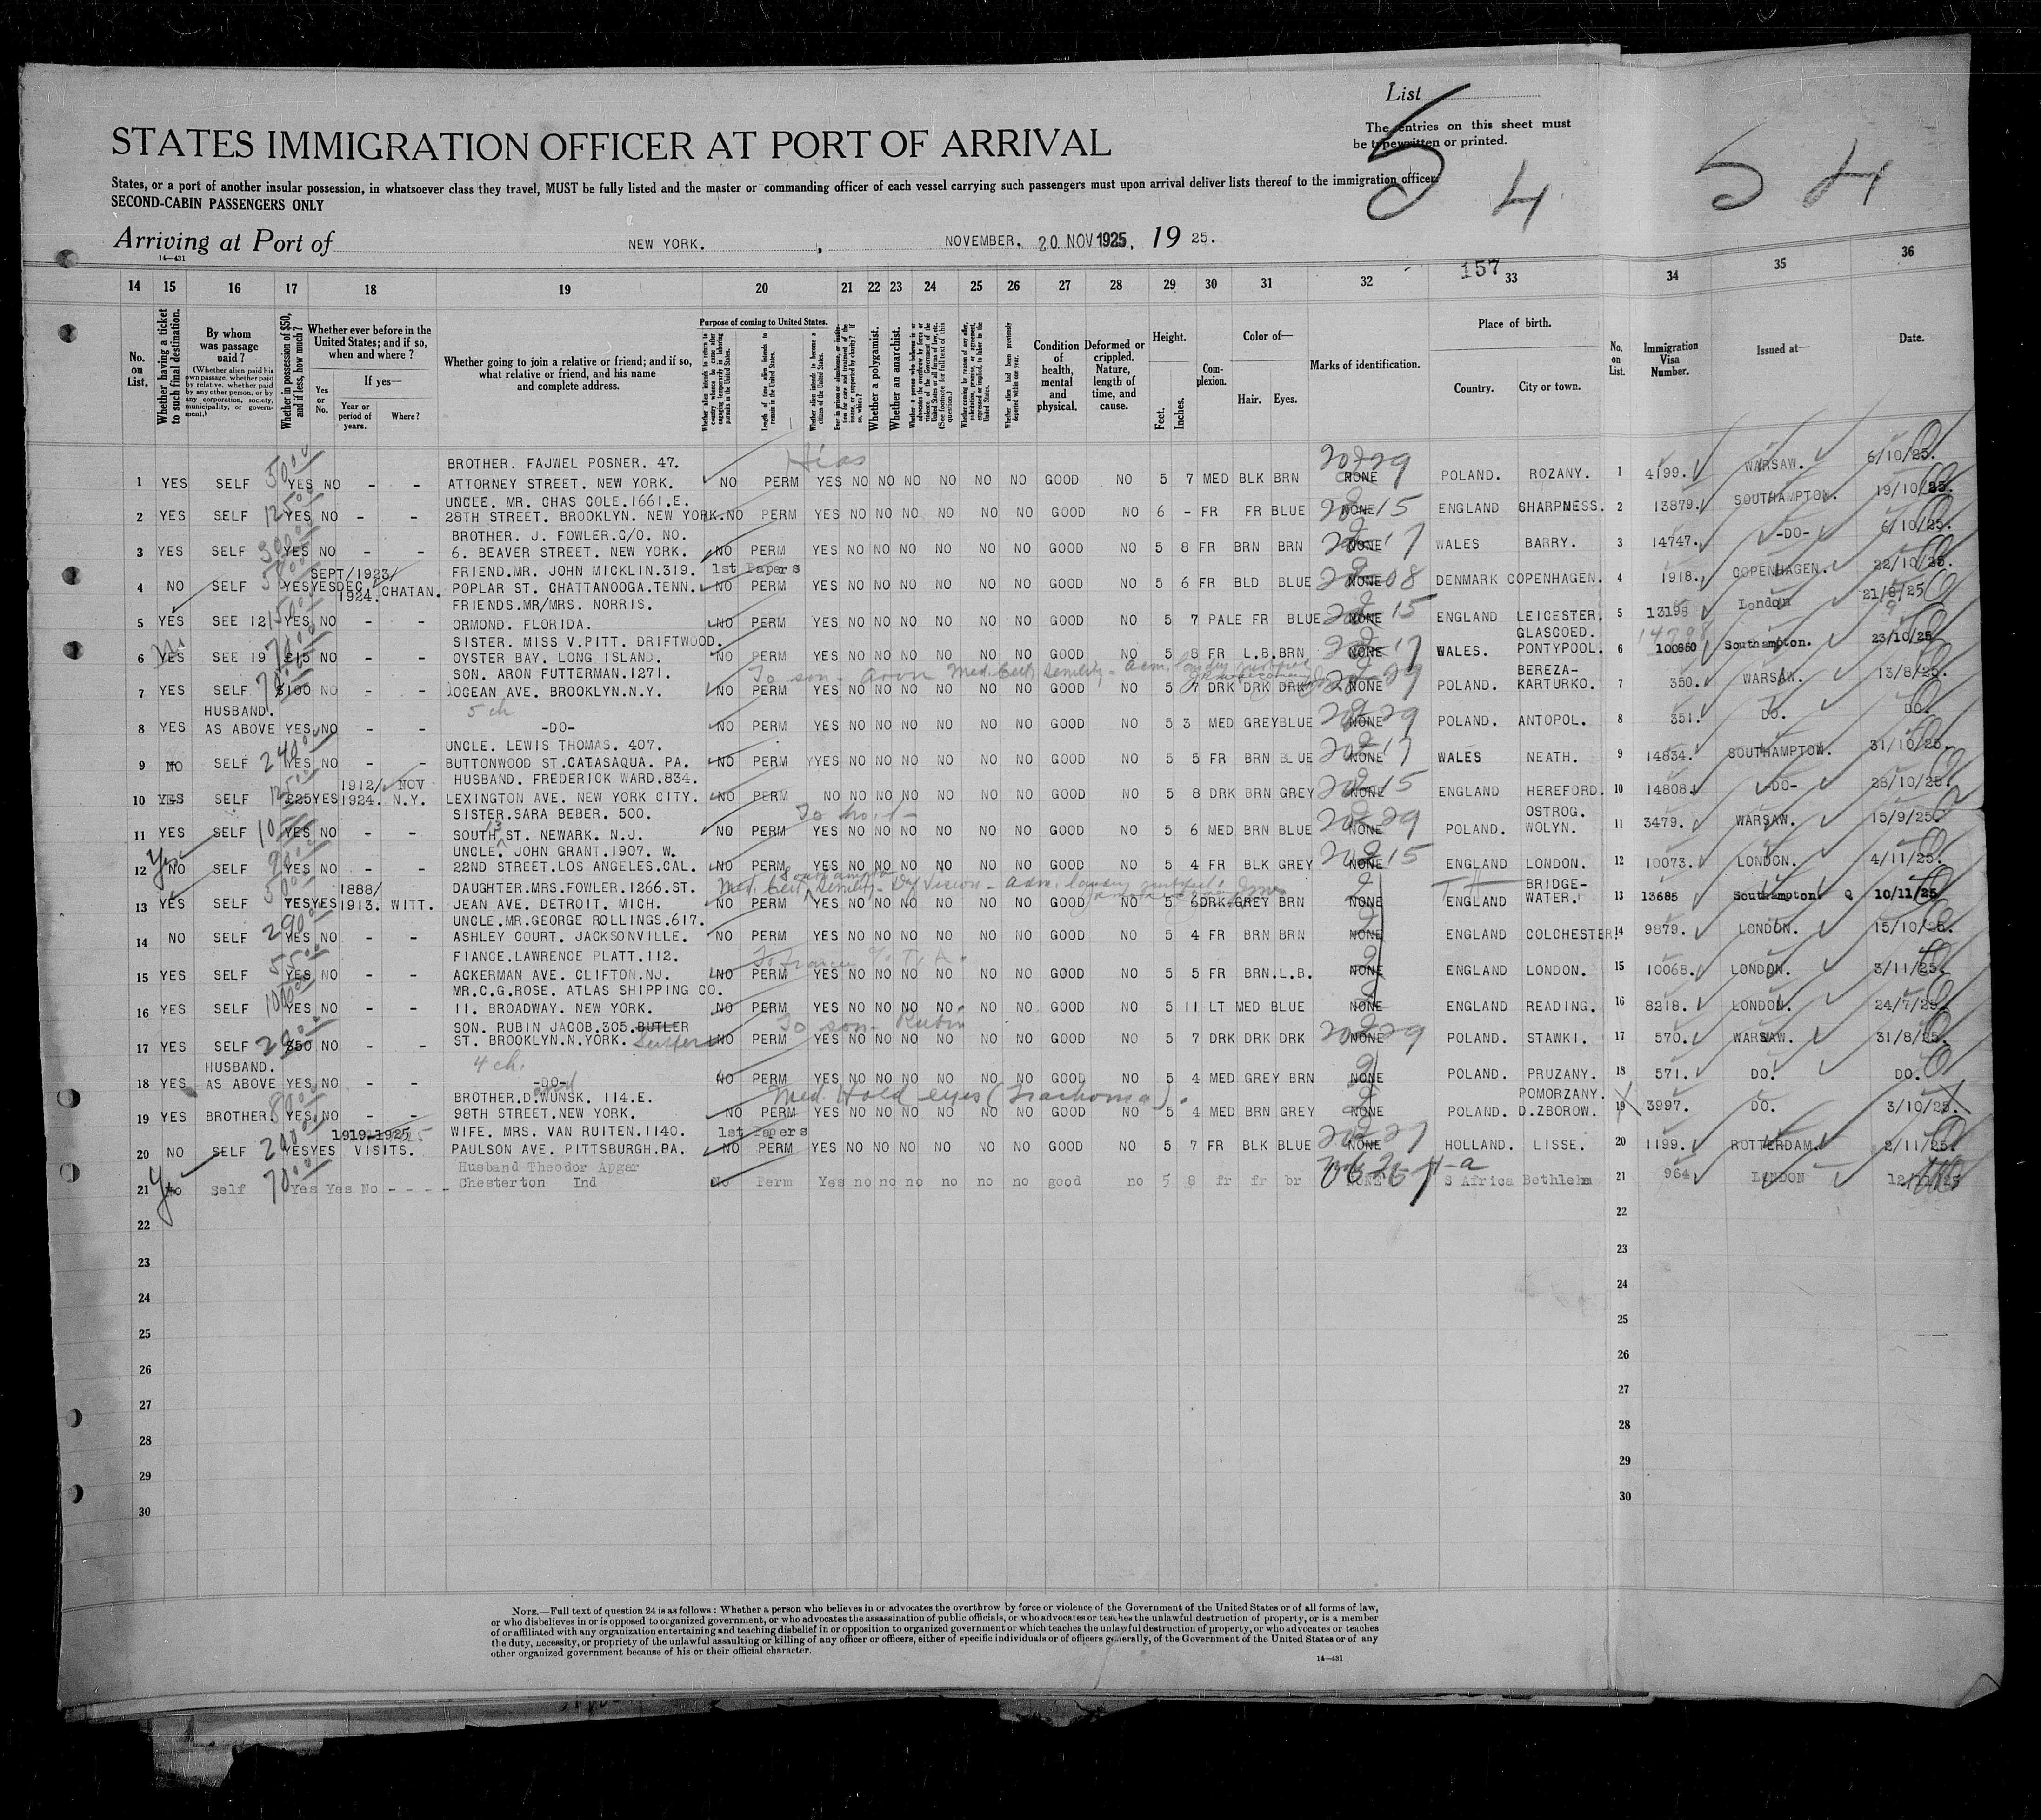 List
The entries on this sheet must
be typewritten or printed.
5 4
5 4
STATES IMMIGRATION OFFICER AT PORT OF ARRIVAL
States, or a port of another insular possession, in whatsoever class they travel, MUST be fully listed and the master or commanding officer of each vessel carrying such passengers must upon arrival deliver lists thereof to the immigration officer
SECOND-CABIN PASSENGERS ONLY
Arriving at Port of NEW YORK. , NOVEMBER. 20 NOV 1925, 19 25.
14—431
157
14 15 16 17 18 19 20 21 22 23 24 25 26 27 28 29 30 31 32 33 34 35 36
No. on List.
Whether having a ticket to such final destination.
By whom was passage paid?
(Whether alien paid his own passage, whether paid by relative, whether paid by any other person, or by any corporation, society, municipality, or government.)
Whether in possession of $50, and if less, how much?
Whether ever before in the United States; and if so, when and where?
Yes or No.
If yes—
Year or period of years.
Where?
Whether going to join a relative or friend; and if so, what relative or friend, and his name and complete address.
Purpose of coming to United States.
Length of time alien intends to remain in the United States.
Whether alien intends to become a citizen of the United States.
Whether a polygamist.
Whether an anarchist.
Condition of health, mental and physical.
Deformed or crippled. Nature, length of time, and cause.
Height.
Feet. Inches.
Complexion.
Color of—
Hair. Eyes.
Marks of identification.
Place of birth.
Country. City or town.
No. on List.
Immigration Visa Number.
Issued at—
Date.
Hias
BROTHER. FAJWEL POSNER. 47.
1 YES SELF YES NO - - ATTORNEY STREET. NEW YORK. NO PERM YES NO NO NO NO NO NO GOOD NO 5 7 MED BLK BRN NONE POLAND. ROZANY. 1 4199. WARSAW. 6/10/25.
UNCLE. MR. CHAS COLE.1661.E.
2 YES SELF YES NO - - 28TH STREET. BROOKLYN. NEW YORK. NO PERM YES NO NO NO NO NO NO GOOD NO 6 - FR FR BLUE NONE ENGLAND SHARPNESS. 2 13879. SOUTHAMPTON. 19/10/25.
BROTHER. J. FOWLER.C/O. NO.
3 YES SELF YES NO - - 6. BEAVER STREET. NEW YORK. NO PERM YES NO NO NO NO NO NO GOOD NO 5 8 FR BRN BRN NONE WALES BARRY. 3 14747. -DO- 6/10/25.
SEPT/1923/ FRIEND.MR. JOHN MICKLIN.319. 1st Papers
4 NO SELF YES YES DEC. 1924. CHATAN. POPLAR ST. CHATTANOOGA.TENN. NO PERM YES NO NO NO NO NO NO GOOD NO 5 6 FR BLD BLUE NONE DENMARK COPENHAGEN. 4 1918. COPENHAGEN. 22/10/25.
FRIENDS.MR/MRS. NORRIS.
5 YES SEE 12 YES NO - - ORMOND. FLORIDA. NO PERM YES NO NO NO NO NO NO GOOD NO 5 7 PALE FR BLUE NONE ENGLAND LEICESTER. 5 13198 London
SISTER. MISS V.PITT. DRIFTWOOD. GLASCOED.
6 YES SEE 19 £15 NO - - OYSTER BAY. LONG ISLAND. NO PERM YES NO NO NO NO NO NO GOOD NO 5 8 FR L.B. BRN NONE WALES. PONTYPOOL. 6 100850 Southampton. 23/10/25
SON. ARON FUTTERMAN.1271. To son - Aron Med. Cert Senility - BEREZA-
7 YES SELF $100 NO - - OCEAN AVE. BROOKLYN.N.Y. NO PERM YES NO NO NO NO NO NO GOOD NO 5 7 DRK DRK DRK NONE POLAND. KARTURKO. 7 350. WARSAW. 13/8/25.
HUSBAND. 5 ch
8 YES AS ABOVE YES NO - - -DO- NO PERM YES NO NO NO NO NO NO GOOD NO 5 3 MED GREY BLUE NONE POLAND. ANTOPOL. 8 351. DO. DO.
UNCLE. LEWIS THOMAS. 407.
9 NO SELF YES NO - - BUTTONWOOD ST.CATASAQUA. PA. NO PERM YYES NO NO NO NO NO NO GOOD NO 5 5 FR BRN BLUE NONE WALES NEATH. 9 14834. SOUTHAMPTON. 31/10/25.
1912/ NOV HUSBAND. FREDERICK WARD.834.
10 YES SELF £25 YES 1924. N.Y. LEXINGTON AVE. NEW YORK CITY. NO PERM NO NO NO NO NO NO NO GOOD NO 5 8 DRK BRN GREY NONE ENGLAND HEREFORD. 10 14808. -DO- 28/10/25.
SISTER.SARA BEBER. 500. OSTROG.
11 YES SELF YES NO - - SOUTH 13 ST. NEWARK. N.J. NO PERM YES NO NO NO NO NO NO GOOD NO 5 6 MED BRN BLUE NONE POLAND. WOLYN. 11 3479. WARSAW. 15/9/25.
UNCLE. JOHN GRANT.1907. W.
12 Yes NO SELF YES NO - - 22ND STREET.LOS ANGELES.CAL. NO PERM YES NO NO NO NO NO NO GOOD NO 5 4 FR BLK GREY NONE ENGLAND LONDON. 12 10073. LONDON. 4/11/25.
1888/ DAUGHTER.MRS.FOWLER.1266.ST. Med. Cert Senility - Def Vision - BRIDGE-
13 YES SELF YES YES 1913. WITT. JEAN AVE. DETROIT. MICH. NO PERM YES NO NO NO NO NO NO GOOD NO 5 6 DRK GREY BRN NONE ENGLAND WATER. 13 13685 Southampton. 10/11/25
UNCLE.MR.GEORGE ROLLINGS.617.
14 NO SELF YES NO - - ASHLEY COURT. JACKSONVILLE. NO PERM YES NO NO NO NO NO NO GOOD NO 5 4 FR BRN BRN NONE ENGLAND COLCHESTER. 14 9879. LONDON. 15/10/25.
FIANCE.LAWRENCE PLATT.112.
15 YES SELF YES NO - - ACKERMAN AVE. CLIFTON.NJ. NO PERM YES NO NO NO NO NO NO GOOD NO 5 5 FR BRN. L.B. NONE ENGLAND LONDON. 15 10068. LONDON. 3/11/25.
MR.C.G.ROSE. ATLAS SHIPPING CO.
16 YES SELF YES NO - - 11. BROADWAY. NEW YORK. NO PERM YES NO NO NO NO NO NO GOOD NO 5 11 LT MED BLUE NONE ENGLAND READING. 16 8218. LONDON. 24/7/25.
SON. RUBIN JACOB.305.BUTLER To son - Rubin
17 YES SELF $50 NO - - ST. BROOKLYN.N.YORK. NO PERM YES NO NO NO NO NO NO GOOD NO 5 7 DRK DRK DRK NONE POLAND. STAWKI. 17 570. WARSAW. 31/8/25.
HUSBAND. 4 ch.
18 YES AS ABOVE YES NO - - -DO- NO PERM YES NO NO NO NO NO NO GOOD NO 5 4 MED GREY BRN NONE POLAND. PRUZANY. 18 571. DO. DO.
BROTHER.D.WUNSK. 114.E. Med. Hold eyes (Trachoma). POMORZANY.
19 YES BROTHER YES NO - - 98TH STREET.NEW YORK. NO PERM YES NO NO NO NO NO NO GOOD NO 5 4 MED BRN GREY NONE POLAND. D.ZBOROW. 19 3997. DO. 3/10/25.
1919-1925 WIFE. MRS. VAN RUITEN.1140. 1st Papers
20 NO SELF YES YES VISITS. PAULSON AVE. PITTSBURGH.PA. NO PERM YES NO NO NO NO NO NO GOOD NO 5 7 FR BLK BLUE NONE HOLLAND. LISSE. 20 1199. ROTTERDAM. 2/11/25.
Husband Theodor Apgar
21 No Self Yes Yes No - - - - Chesterton Ind No Perm Yes no no no no no no good no 5 8 fr fr br NONE S Africa Bethlehm 21 964 LONDON
22 22
23 23
24 24
25 25
26 26
27 27
28 28
29 29
30 30
NOTE.—Full text of question 24 is as follows: Whether a person who believes in or advocates the overthrow by force or violence of the Government of the United States or of all forms of law,
or who disbelieves in or is opposed to organized government, or who advocates the assassination of public officials, or who advocates or teaches the unlawful destruction of property, or is a member
of or affiliated with any organization entertaining and teaching disbelief in or opposition to organized government or which teaches the unlawful destruction of property, or who advocates or teaches
the duty, necessity, or propriety of the unlawful assaulting or killing of any officer or officers, either of specific individuals or of officers generally, of the Government of the United States or of any
other organized government because of his or their official character.
14—431